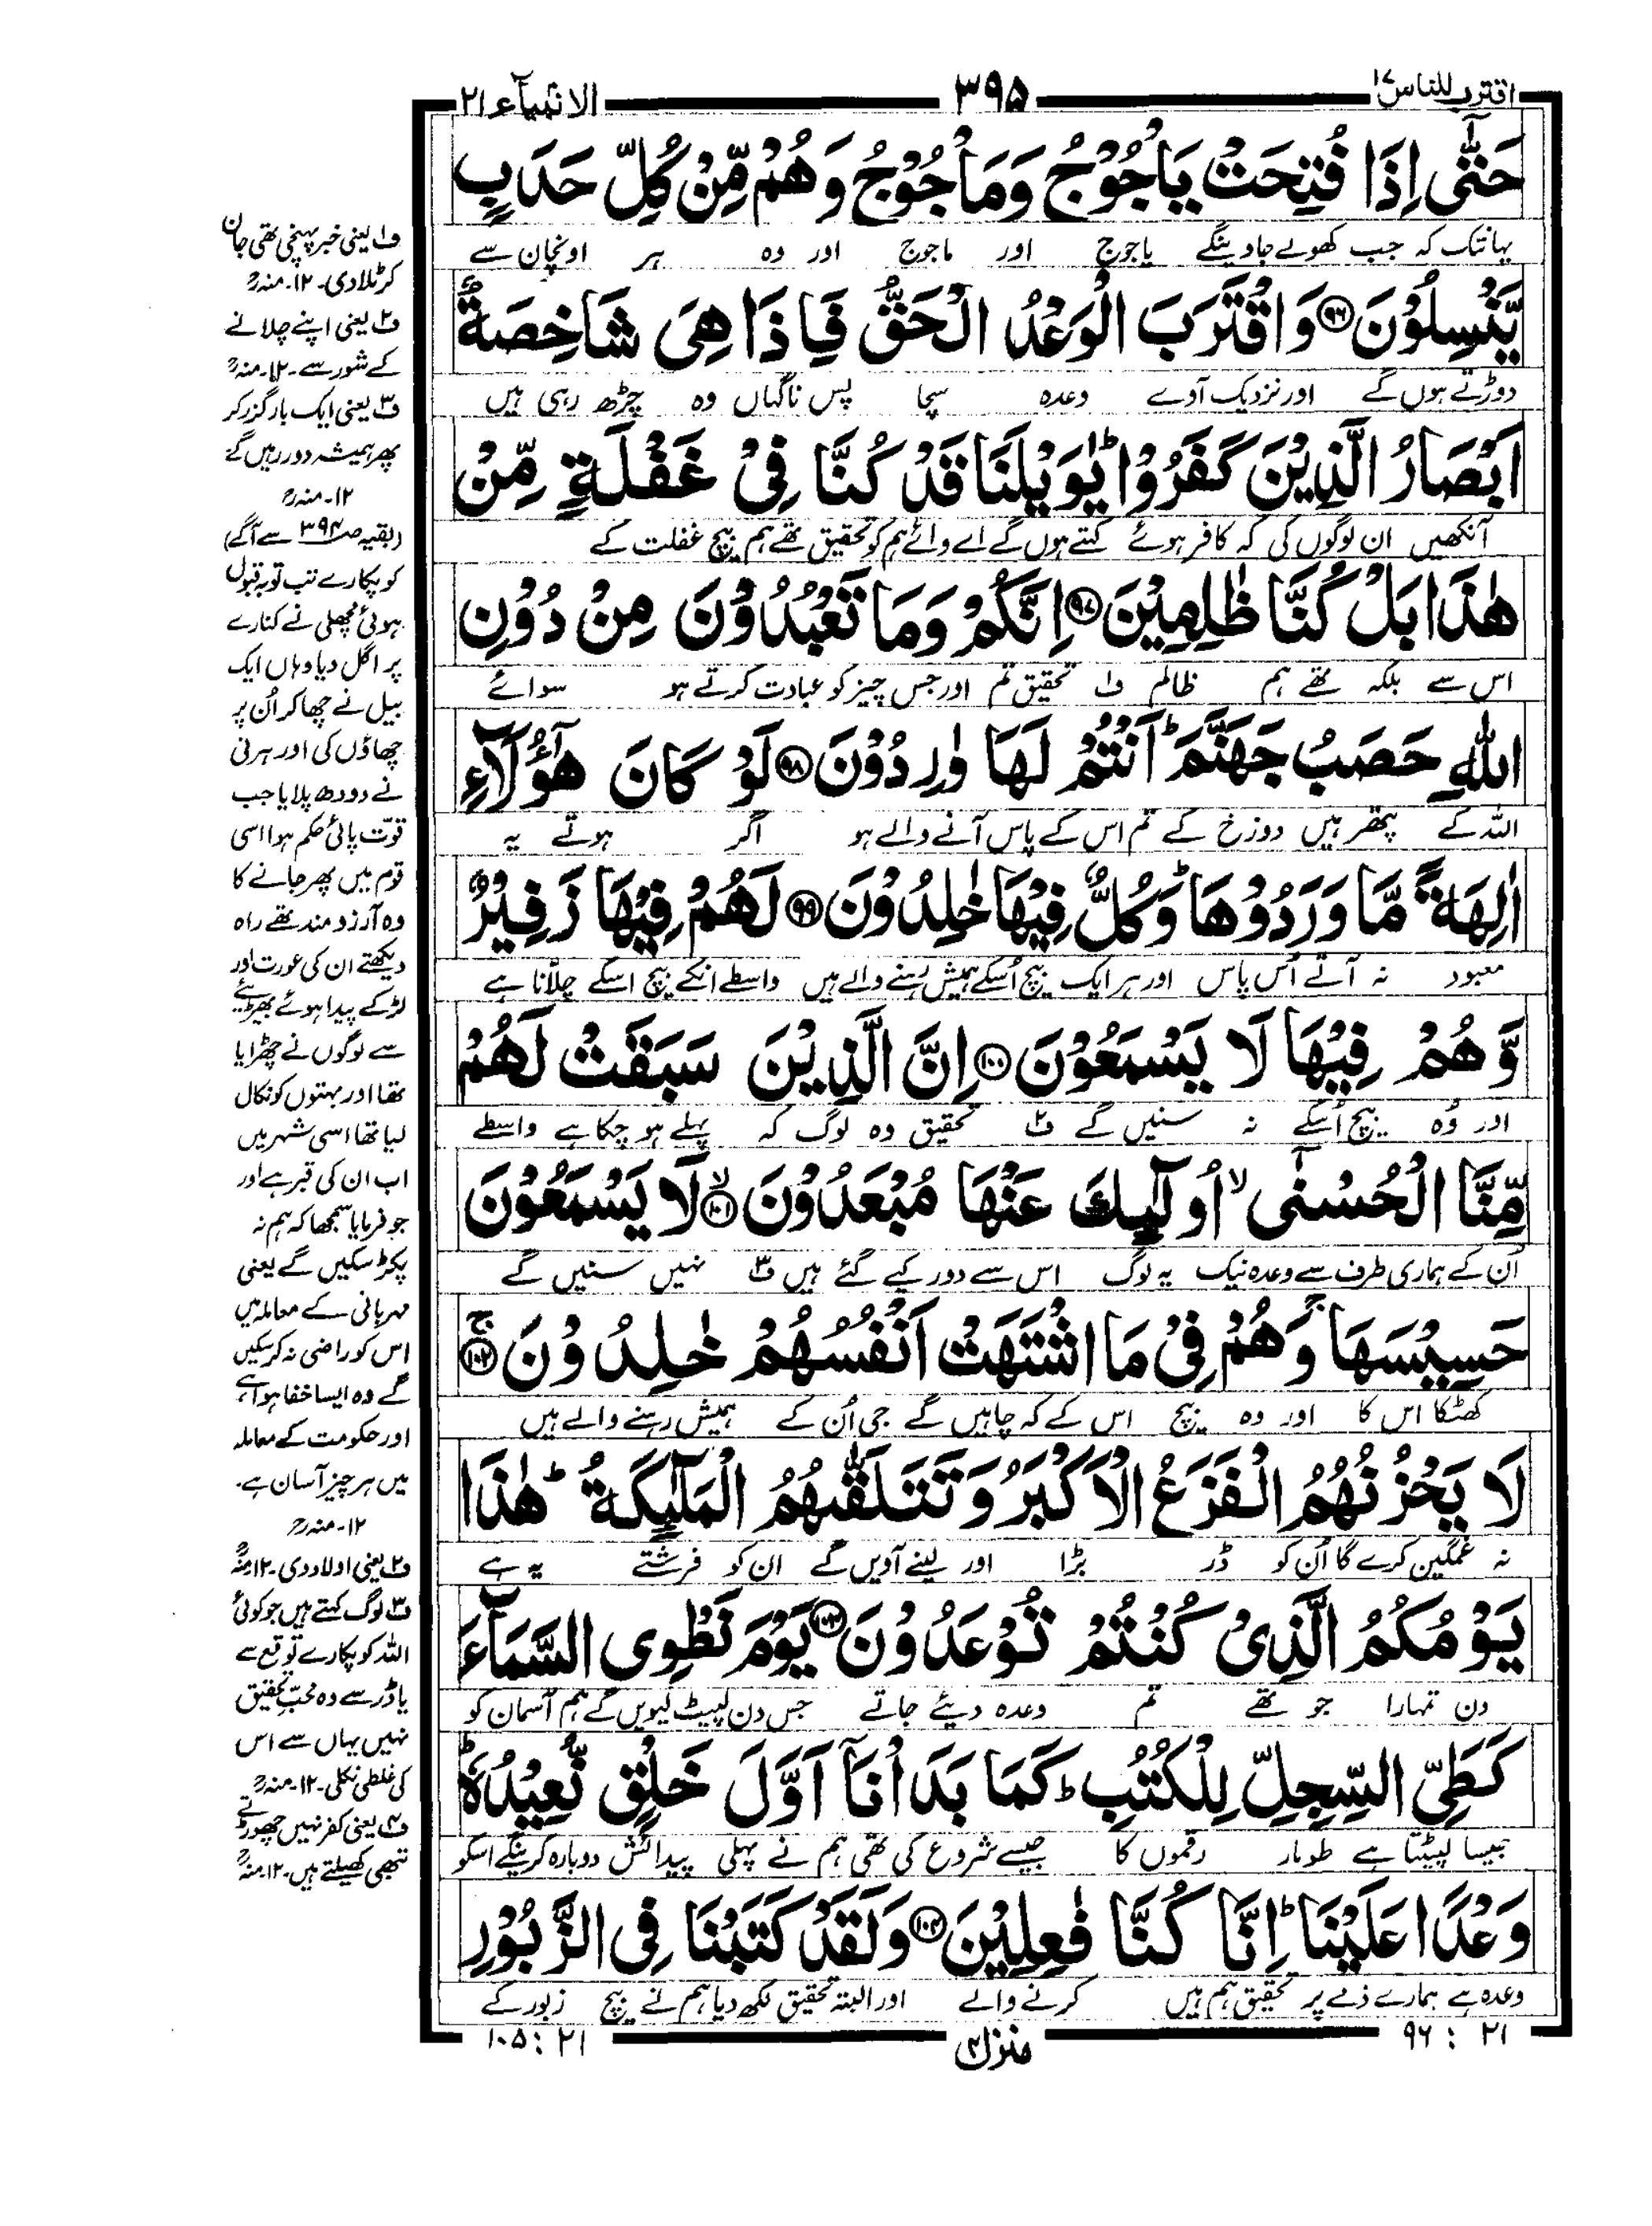 اقترب للناس ۱۷
۳۹۵
الانبیآء ۲۱
حَتّٰۤى اِذَا فُتِحَتْ يَاْجُوْجُ وَمَاْجُوْجُ وَهُمْ مِّنْ كُلِّ حَدَبٍ
یہانتک کہ جب کھولے جاویںگے یاجوج اور ماجوج اور وہ ہر اونچان سے
يَّنْسِلُوْنَ ۹۶ وَاقْتَرَبَ الْوَعْدُ الْحَقُّ فَاِذَا هِىَ شَاخِصَةٌ
دوڑتے ہوں گے اور نزدیک آوے وعدہ سچا پس ناگہاں وہ چڑھ رہی ہیں
اَبْصَارُ الَّذِيْنَ كَفَرُوْا ؕ يٰوَيْلَنَا قَدْ كُنَّا فِىْ غَفْلَةٍ مِّنْ
آنکھیں ان لوگوں کی کہ کافر ہوئے کہتے ہوں گے اے وائے ہم کو تحقیق تھے ہم بیچ غفلت کے
هٰذَا بَلْ كُنَّا ظٰلِمِيْنَ ۹۷ اِنَّكُمْ وَمَا تَعْبُدُوْنَ مِنْ دُوْنِ
اس سے بلکہ تھے ہم ظالم ف۱ تحقیق تم اور جس چیز کو عبادت کرتے ہو سوائے
اللّٰهِ حَصَبُ جَهَنَّمَ ؕ اَنْتُمْ لَهَا وٰرِدُوْنَ ۹۸ لَوْ كَانَ هٰٓؤُلَآءِ
اللہ کے پتھر ہیں دوزخ کے تم اس کے پاس آنے والے ہو اگر ہوتے یہ
اٰلِهَةً مَّا وَرَدُوْهَا ؕ وَكُلٌّ فِيْهَا خٰلِدُوْنَ ۹۹ لَهُمْ فِيْهَا زَفِيْرٌ
معبود نہ آتے اُس پاس اور ہر ایک بیچ اُسکے ہمیش رہنے والے ہیں واسطے انکے بیچ اسکے چلّانا ہے
وَّهُمْ فِيْهَا لَا يَسْمَعُوْنَ ۱۰۰ اِنَّ الَّذِيْنَ سَبَقَتْ لَهُمْ
اور وُہ بیچ اُسکے نہ سنیں گے ف۲ تحقیق وہ لوگ کہ پہلے ہو چکا ہے واسطے
مِّنَّا الْحُسْنٰٓى ۙ اُولٰٓئِكَ عَنْهَا مُبْعَدُوْنَ ۱۰۱ۙ لَا يَسْمَعُوْنَ
اُن کے ہماری طرف سے وعدہ نیک یہ لوگ اس سے دور کیے گئے ہیں ف۳ نہیں سنیں گے
حَسِيْسَهَا ۚ وَهُمْ فِىْ مَا اشْتَهَتْ اَنْفُسُهُمْ خٰلِدُوْنَ ۱۰۲ۚ
کھٹکا اس کا اور وہ بیچ اس کے کہ چاہیں گے جی اُن کے ہمیش رہنے والے ہیں
لَا يَحْزُنُهُمُ الْفَزَعُ الْاَكْبَرُ وَتَتَلَقّٰٮهُمُ الْمَلٰٓئِكَةُ ؕ هٰذَا
نہ غمگین کرے گا اُن کو ڈر بڑا اور لینے آویں گے ان کو فرشتے یہ ہے
يَوْمُكُمُ الَّذِىْ كُنْتُمْ تُوْعَدُوْنَ ۱۰۳ يَوْمَ نَطْوِى السَّمَآءَ
دن تمہارا جو تھے تم وعدہ دیئے جاتے جس دن لپیٹ لیویں گے ہم آسمان کو
كَطَىِّ السِّجِلِّ لِلْكُتُبِ ؕ كَمَا بَدَاْنَاۤ اَوَّلَ خَلْقٍ نُّعِيْدُهٗ ؕ
جیسا لپیٹتا ہے طومار رقموں کا جیسے شروع کی تھی ہم نے پہلی پیدائش دوبارہ کرینگے اسکو
وَعْدًا عَلَيْنَا ؕ اِنَّا كُنَّا فٰعِلِيْنَ ۱۰۴ وَلَقَدْ كَتَبْنَا فِى الزَّبُوْرِ
وعدہ ہے ہمارے ذمے پر تحقیق ہم ہیں کرنے والے اور البتہ تحقیق لکھ دیا ہم نے بیچ زبور کے
۲۱ : ۹۶
منزل ۴
۲۱ : ۱۰۵
ف۱ یعنی خبر پہنچی تھی جان
کر ٹلا دی۔ ۱۲۔ منہ رح
ف۲ یعنی اپنے چلانے
کے شور سے۔ ۱۲۔ منہ رح
ف۳ یعنی ایک بار گزر کر
پھر ہمیشہ دور رہیں گے
۱۲۔ منہ رح
(بقیہ صـ ۳۹۴ سے آگے)
کو پکارے تب توبہ قبول
ہوئی مچھلی نے کنارے
پر اگل دیا وہاں ایک
بیل نے چھا کر اُن پر
چھاؤں کی اور ہرنی
نے دودھ پلایا جب
قوّت پائی حکم ہوا اسی
قوم میں پھر جانے کا
وہ آرزومند تھے راہ
دیکھتے ان کی عورت اور
لڑکے پیدا ہوئے بھیڑیے
سے لوگوں نے چھڑایا
تھا اور بہتوں کو نکال
لیا تھا اسی شہر میں
اب ان کی قبر ہے اور
جو فرمایا سمجھا کہ ہم نہ
پکڑ سکیں گے یعنی
مہربانی کے معاملہ میں
اس کو راضی نہ کر سکیں
گے وہ ایسا خفا ہوا ہے
اور حکومت کے معاملہ
میں ہر چیز آسان ہے۔
۱۲۔ منہ رح
ف۲ یعنی اولاد دی۔ ۱۲ منہ رح
ف۳ لوگ کہتے ہیں جو کوئی
اللہ کو پکارے توقع سے
یا ڈر سے وہ محبِّ تحقیق
نہیں یہاں سے اس
کی غلطی نکلی۔ ۱۲۔ منہ رح
ف۴ یعنی کفر نہیں چھوڑتے
تبھی کھپتے ہیں۔ ۱۲۔ منہ رح